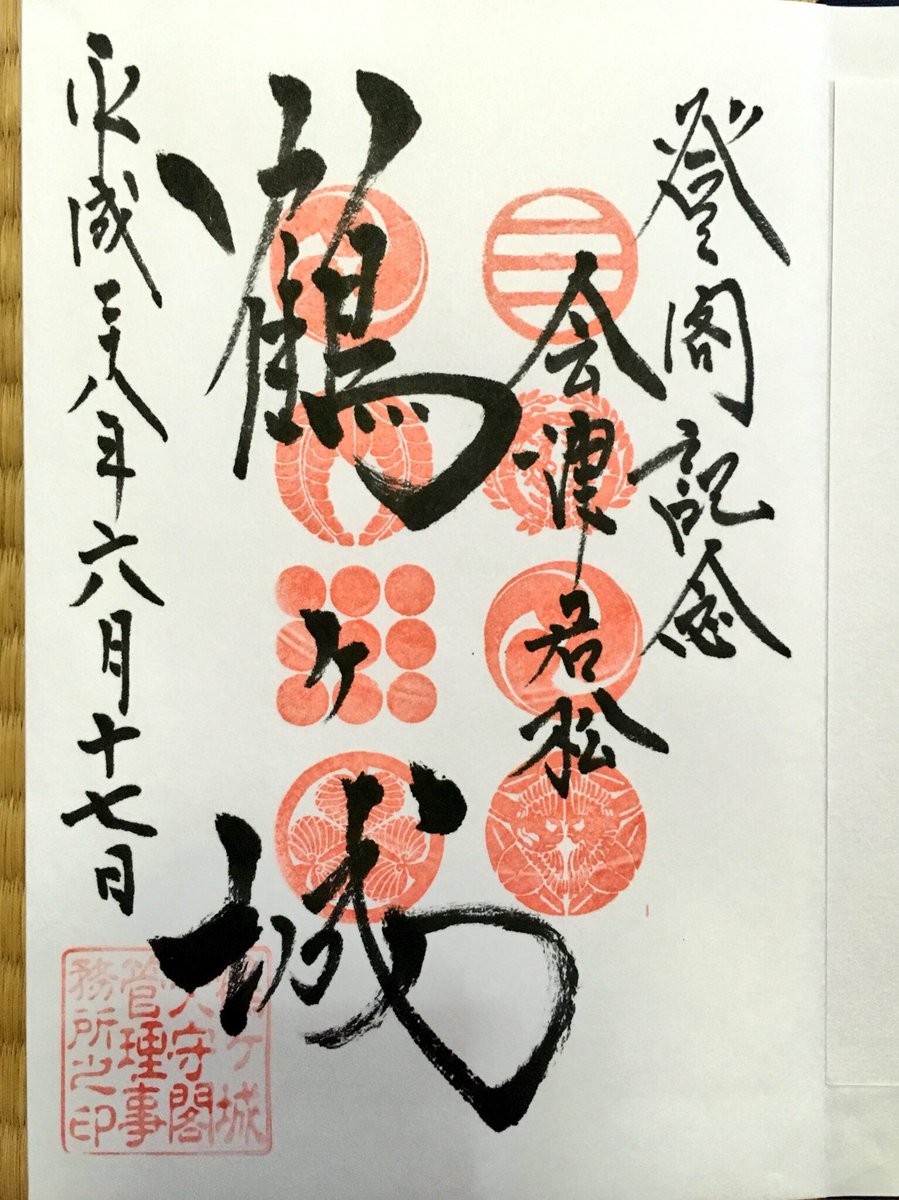 登閣記念
会津若松
鶴ヶ城
平成二十八年六月十七日
鶴ヶ城
天守閣
管理事
務所之印